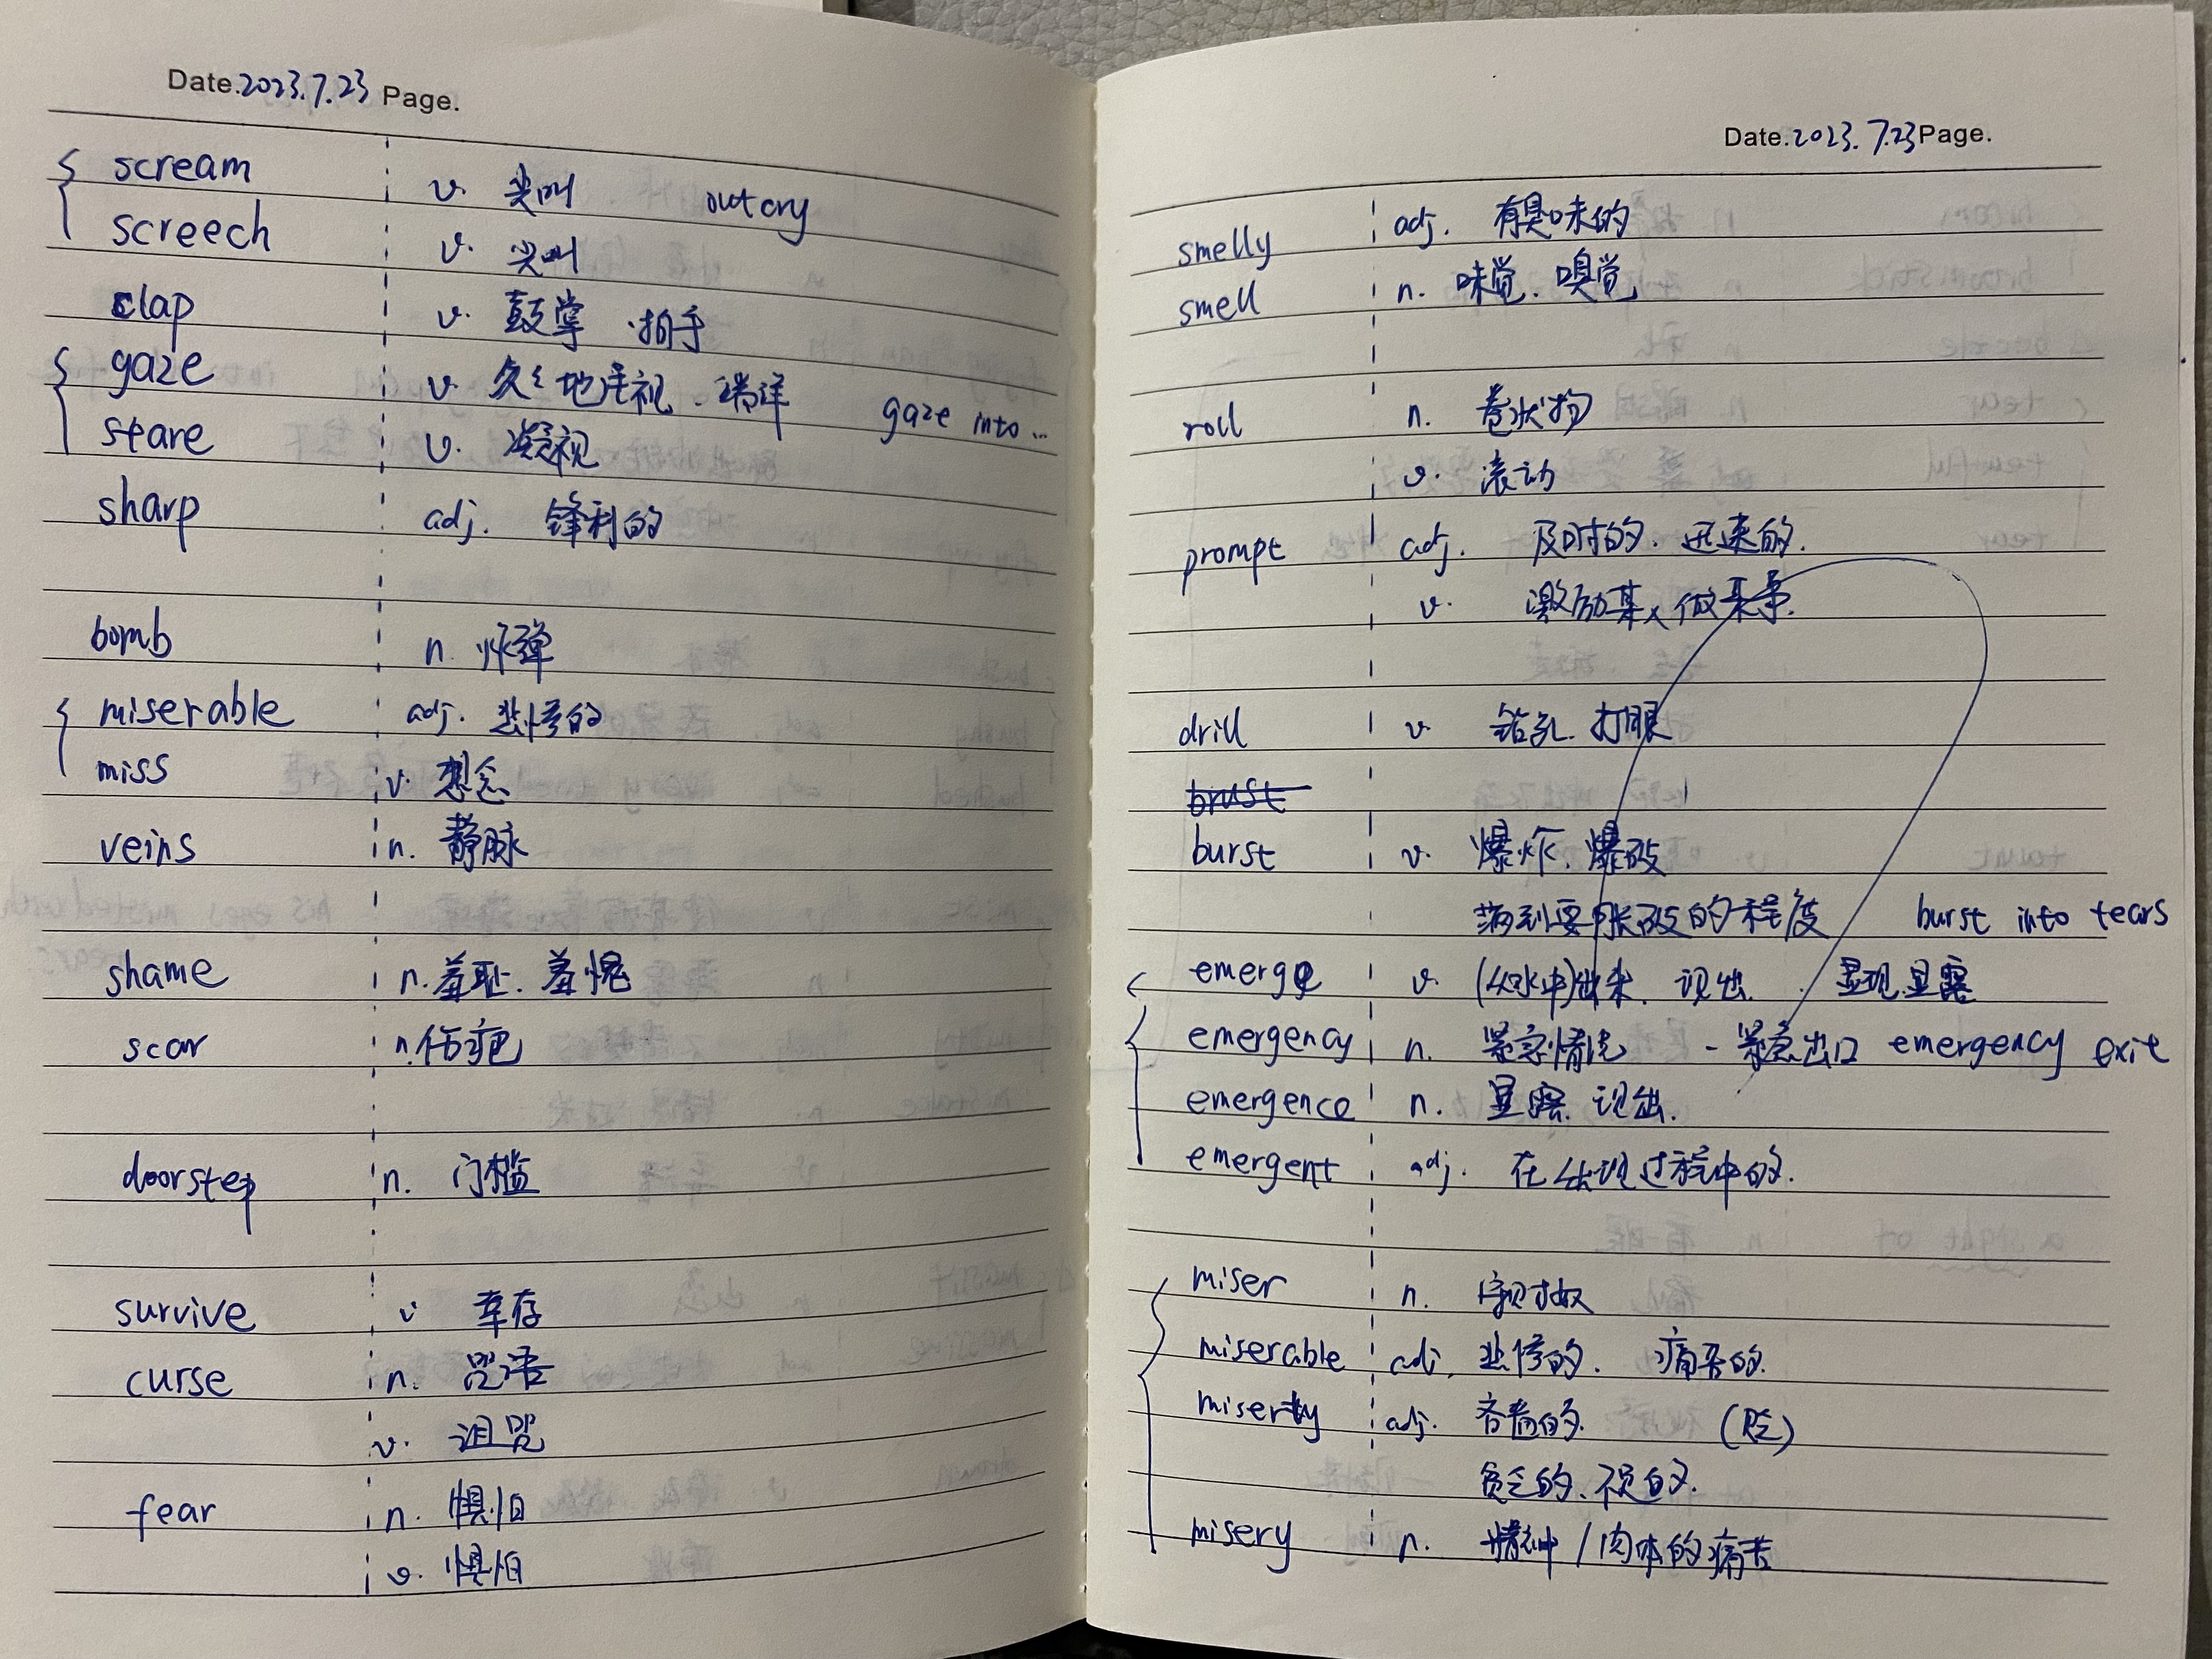 Date.2023.7.23 Page.
scream v. 尖叫 outcry
screech v. 尖叫
clap v. 鼓掌.拍手
gaze v. 久久地注视.端详 gaze into...
stare v. 凝视
sharp adj. 锋利的
bomb n. 炸弹
miserable adj. 悲惨的
miss v. 想念
veins n. 静脉
shame n. 羞耻.羞愧
scar n. 伤疤
doorstep n. 门槛
survive v 幸存
curse n. 咒语
v. 诅咒
fear n. 惧怕
v. 惧怕
Date.2023.7.23 Page.
smelly adj. 有臭味的
smell n. 味觉.嗅觉
roll n. 卷状物
v. 滚动
prompt adj. 及时的.迅速的.
v. 激励某人做某事.
drill v. 钻孔.打眼
brust
burst v. 爆炸.爆破
满到要胀破的程度 burst into tears
emerge v. (从水中)出来.现出.显现.显露
emergency n. 紧急情况 - 紧急出口 emergency exit
emergence n. 显露.现出.
emergent adj. 在出现过程中的.
miser n. 守财奴
miserable adj. 悲惨的.痛苦的.
adj. 吝啬的. (贬)
贫乏的.不足的.
misery n. 精神/肉体的痛苦